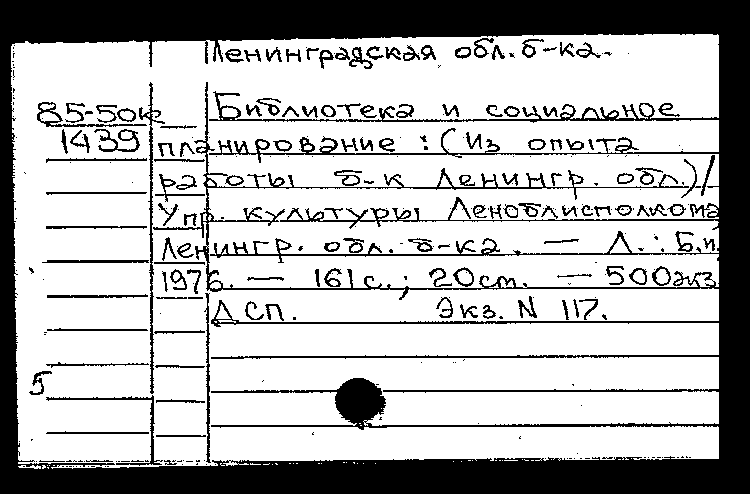 Ленинградская обл. б-ка.
85-50к Библиотека и социальное
1439 планирование : (Из опыта
работы б-к Ленингр. обл.) /
Упр. культуры Леноблисполкома
Ленингр. обл. б-ка. — Л. : Б.и.
1976. — 161 с.; 20 см. — 500 экз
ДСП. Экз. N 117.
5